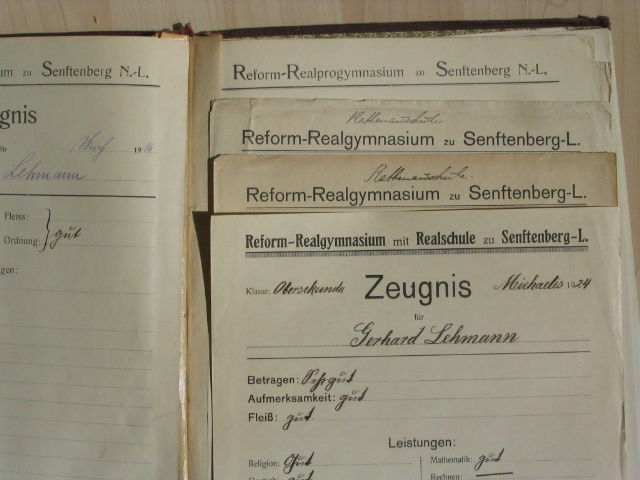 um zu Senftenberg N.-L.
gnis
für
1916
Lehmann
Fleiss:
Ordnung: } gut
gen:
Reform-Realprogymnasium zu Senftenberg N.-L.
Rathenauschule
Reform-Realgymnasium zu Senftenberg-L.
Rathenauschule.
Reform-Realgymnasium zu Senftenberg-L.
Reform-Realgymnasium mit Realschule zu Senftenberg-L.
Klasse: Obersekunda Zeugnis Michaelis 1924
für
Gerhard Lehmann
Betragen: Sehr gut
Aufmerksamkeit: gut
Fleiß: gut.
Leistungen:
Religion: Gut Mathematik: gut
Deutsch: gut Rechnen: —